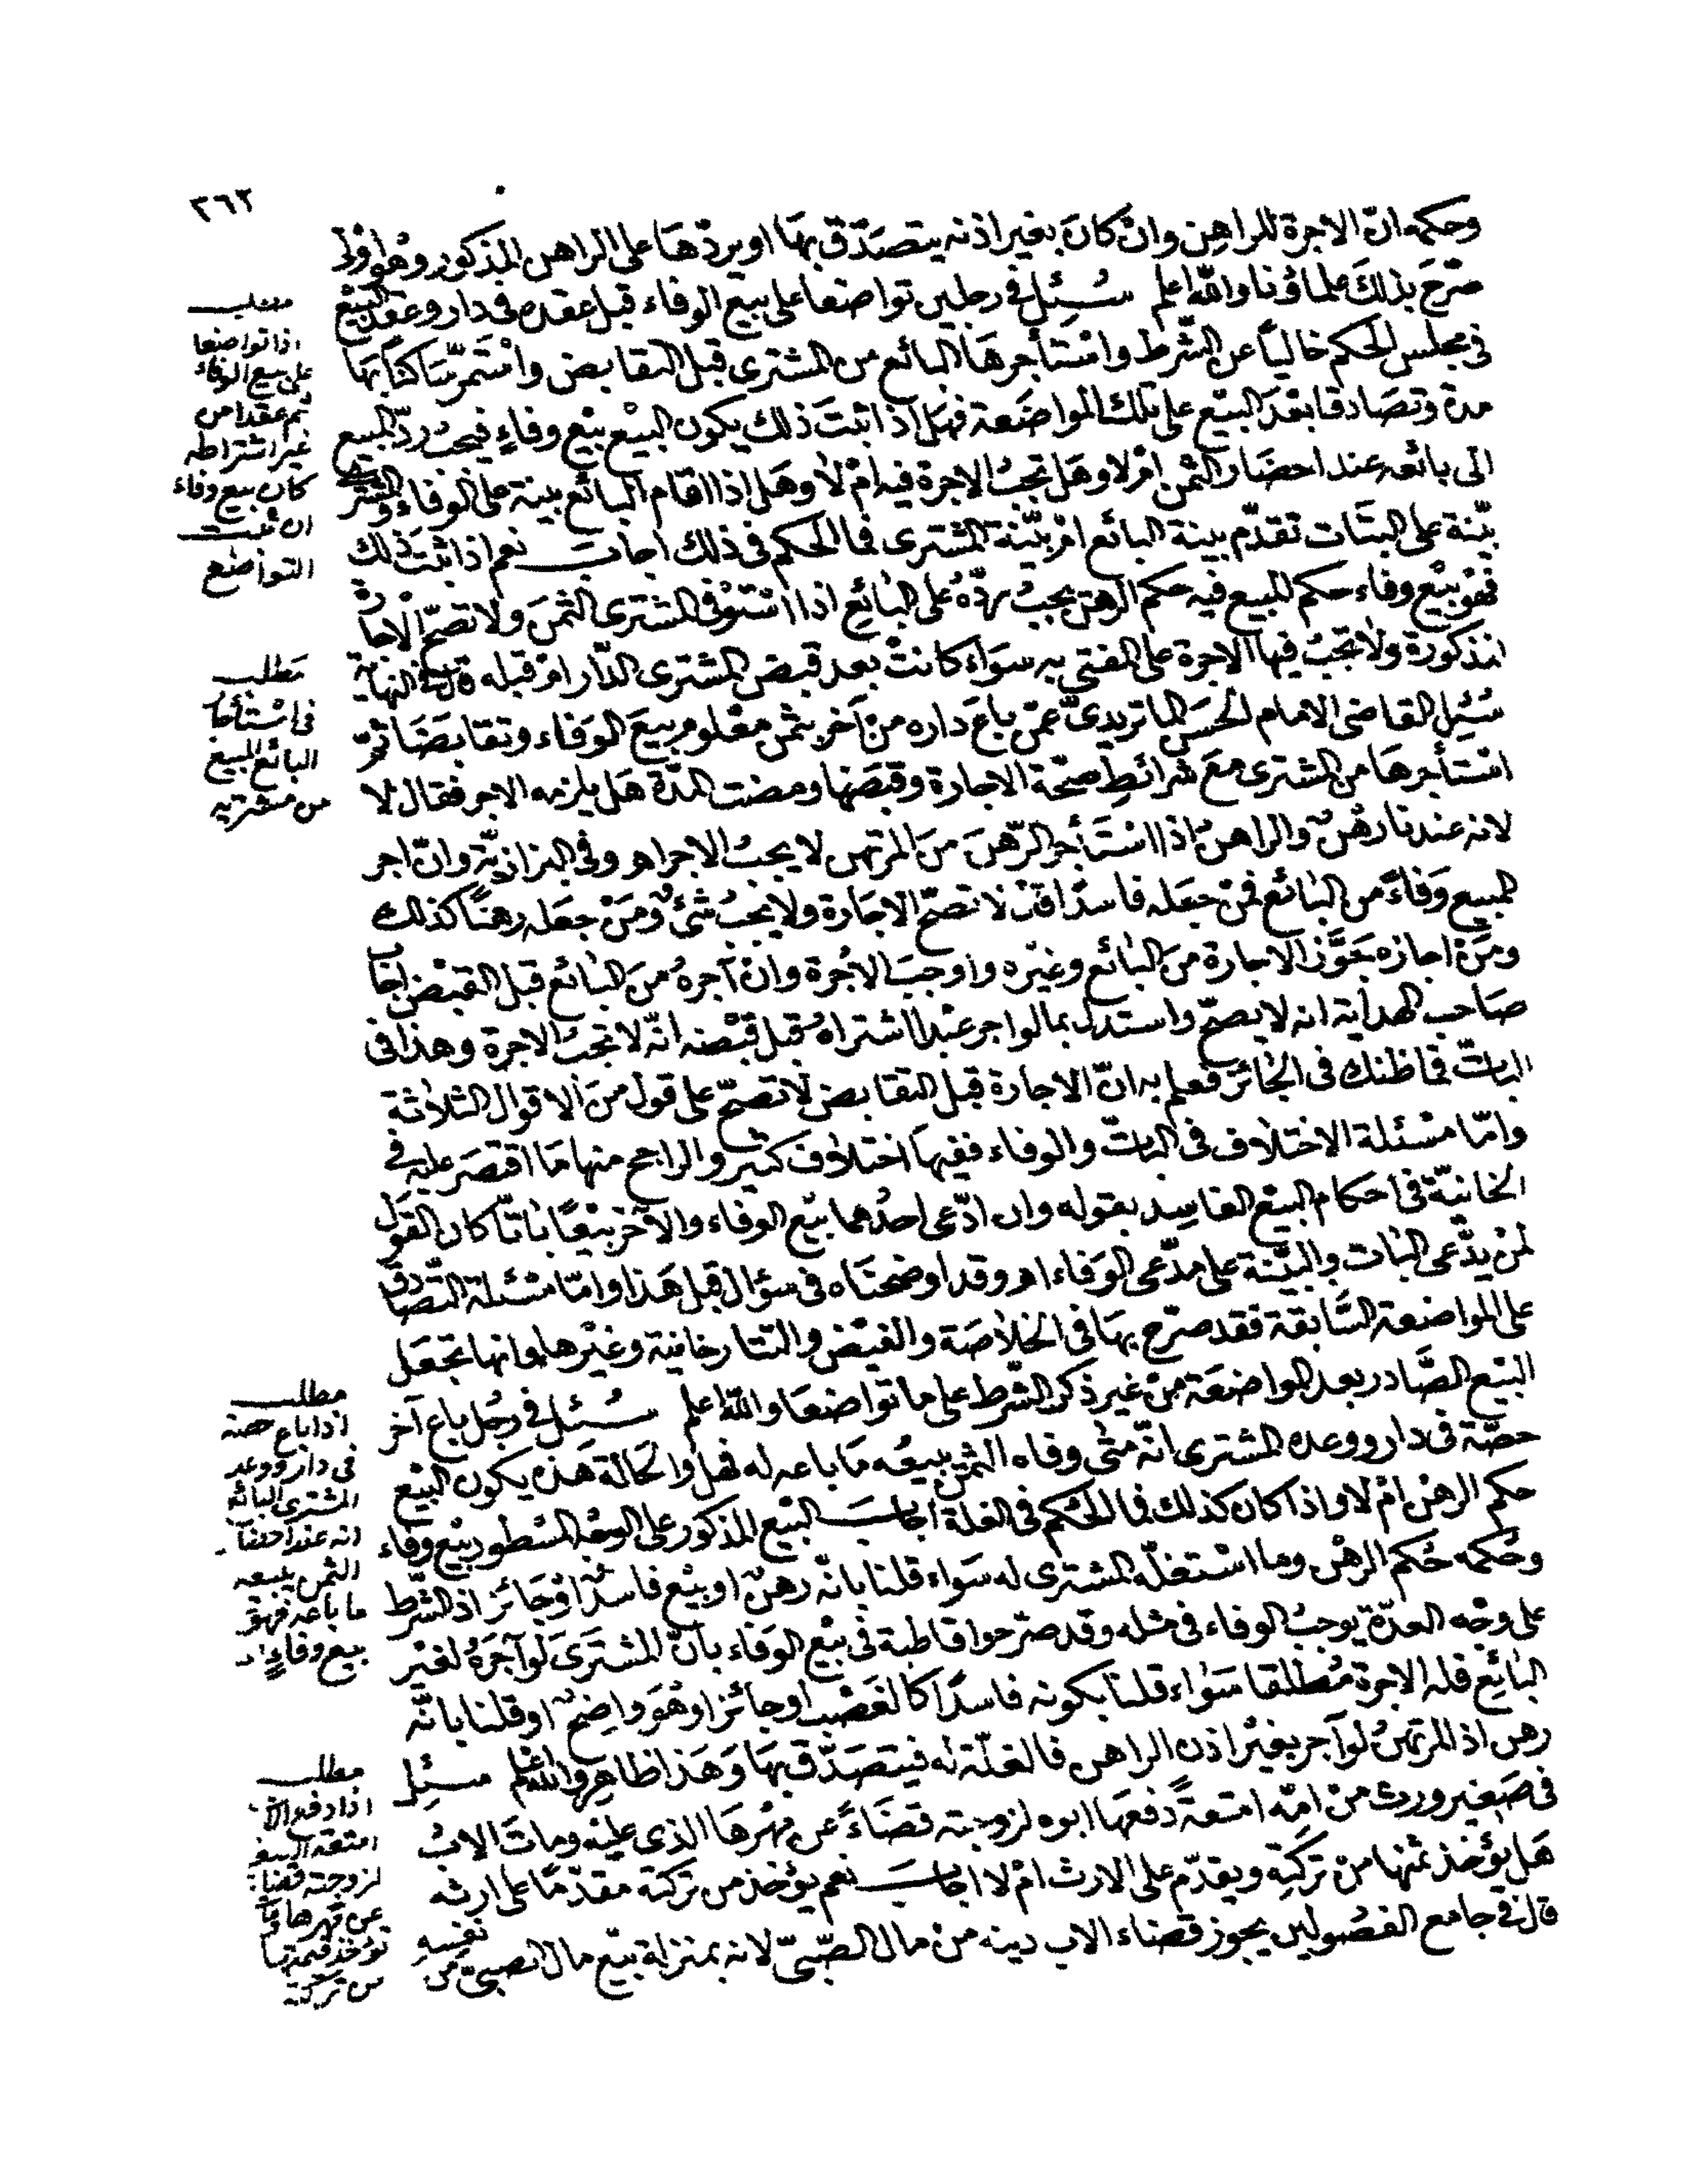 ٣٦٣
وحكمه انّ الاجرة للراهن وانْ كانَ بغير اذنه يتصدّق بهَا او يردّهَا على الراهن المذكور وهُو اوْلى
صَرّحَ بذلكَ علماؤنا واللّه اعلم سُئِل فى رجلين تواضعا على بيع الوفاء قبل عقده فى دار وعقدا البيْع
فى مجلس الحكم خاليًا عن الشّرط واسْتأجرهَا البائع من المشترى قبل التقابض واسْتَمرّ سَاكنًا بهَا
مدة وتصَادقا بعْدَ البيْع على تلك المواضَعة فهَل اذا ثبتَ ذلك يكون البيْع بيْع وفاءٍ فيجبُ ردّ المبيع
الى بائعه عند احضَار الثمن امْ لا وهَل تجبُ الاجرة فيه امْ لا وهَل اذا اقام البائع بينة على الوفاء والمشترى
بيّنة على البتَات تقدّم بينة البائع امْ بيّنة المشترى فما الحكم فى ذلك اجابَ نعم اذا ثبتَ ذلك
فهْو بيْع وفاء حكم المبيع فيه حكم الرهن يجبُ ردّه على البائع اذا اسْتوْفى المشترى الثمنَ ولا تصحّ الاجارة
المذكورة ولا تجبُ فيها الاجرة على المفتى به سوَاء كانتْ بعد قبض المشترى الدّار امْ قبله قال فى النهاية
سُئِل القاضى الامام الحسَن الماتريدىّ عمّن باعَ داره منْ آخر بثمن معْلوم بيعَ الوَفاء وتقابضَا ثمّ
اسْتأجرهَا من المشترى معَ شرائط صحّة الاجارة وقبَضَها ومضت المدّة هَل يلزمه الاجر فقال لا
لانه عندنا رهْنٌ والراهنُ اذا اسْتَأجَر الرّهنَ منَ المرتهن لا يجبُ الاجر اهـ وفى البزازيّة وانْ اجر
المبيع وَفاءً من البائع فمنْ جعَله فاسدًا قال لا تصحّ الاجَارة ولا يجبُ شئ ومَنْ جعَله رهنًا كذلك
ومَنْ اجازه جَوّز الاجارة منَ البائع وغيْره واوجبَ الاجْرة وانْ آجرهُ منَ البائع قبل القبْض اجاب
صَاحب الهداية انه لا يصحّ واستدلّ بما لو اجر عبْدا اشتراهُ قبل قبْضه انّه لا تجبُ الاجرة وهذا فى
الباتّ فما ظنك فى الجائز فعلم به انّ الاجارة قبل التقابض لا تصحّ على قول منَ الاقوال الثلاثة
وامّا مسْئلة الاختلاف فى البات والوفاء ففيهَا اختلاف كثير والراجح منها مَا اقتصَر عليه فى
الخانيّة فى احكام البيْع الفاسِد بقوله وان ادّعى احدُهما بيْع الوفاء والآخر بيْعًا باتّا كان القوْل
لمنْ يدّعى البات والبيّنة على مدّعى الوَفاء اهـ وقد اوضحْنَاه فى سؤال قبل هَذا وامّا مسْئلة التّصَادق
على المواضعة السّابقة فقد صرّح بهَا فى الخلاصَة والفيْض والتتارخانية وغيْرها وانها تجعَل
البيْع الصّادر بعد المواضعَة منْ غير ذكر الشّرط على ما تواضعَا واللّه اعلم سُئل فى رجُل باع آخر
حصّة فى دار ووعده المشترى انّه متى وفاه الثمن يبيعُه مَا باعه له فهل والحَالة هَذه يكون البيْع
حكم الرهن امْ لا واذا كان كذلك فما الحُكم فى الغلة اجابَ البيْع المذكور على الوجْه المسْطور بيْع وفاء
وحُكمه حُكم الرهْن وما اسْتغلّه المشترى له سَواء قلنا بانّه رهنٌ او بيْع فاسدٌ اوْ جَائز اذ الشّرط
على وجْه العدّة يوجبُ الوفاء فى مثله وقد صرّحوا قاطبة فى بيْع الوَفاء بانّ المشترىَ لو آجَرَهُ لغيْر
البائع فله الاجرة مُطلقا سَواء قلنا بكونه فاسدًا كالغصْب او جائزا وهْوَ واضِحٌ او قلنا بانّه
رهن اذ المرتهنُ لو آجر بغيْر اذن الراهن فالغلّة له فيتصَدّق بهَا وَهَذا ظاهِر واللّه اعلم سُئِل
فى صَغير ورث منْ امّه امتعةً دفعَها ابوه لزوجته قضَاءً عن مهْرهَا الذى عليْه وماتَ الابُ
هَل يؤخذ ثمنها منْ تركته ويقدّم على الارث امْ لا اجابَ نعم يؤخذ من تركته مقدّمًا على ارثه
قال فى جامع الفصُولين يجوز قضاء الاب دينه منْ مال الصّبىّ لانه بمنزلة بيْع مال الصبىّ من نفسه
مطلب
اذا تواضعا
على بيع الوفاء
ثم عقدا من
غير اشتراطه
كان بيع وفاء
ان ثبت
التواضع
مَطلب
فى اسْتأجار
البائع المبيع
من مشتريه
مطلب
اذا باع حصة
فى دار ووعد
المشترى البائع
انه عند احضار
الثمن يبيعه
ما باعه فهو
بيع وفاءٍ
مطلب
اذا دفع الاب
امتعة الصغير
لزوجته قضاء
عن مهرها ومات
تؤخذ قيمتها
من تركته